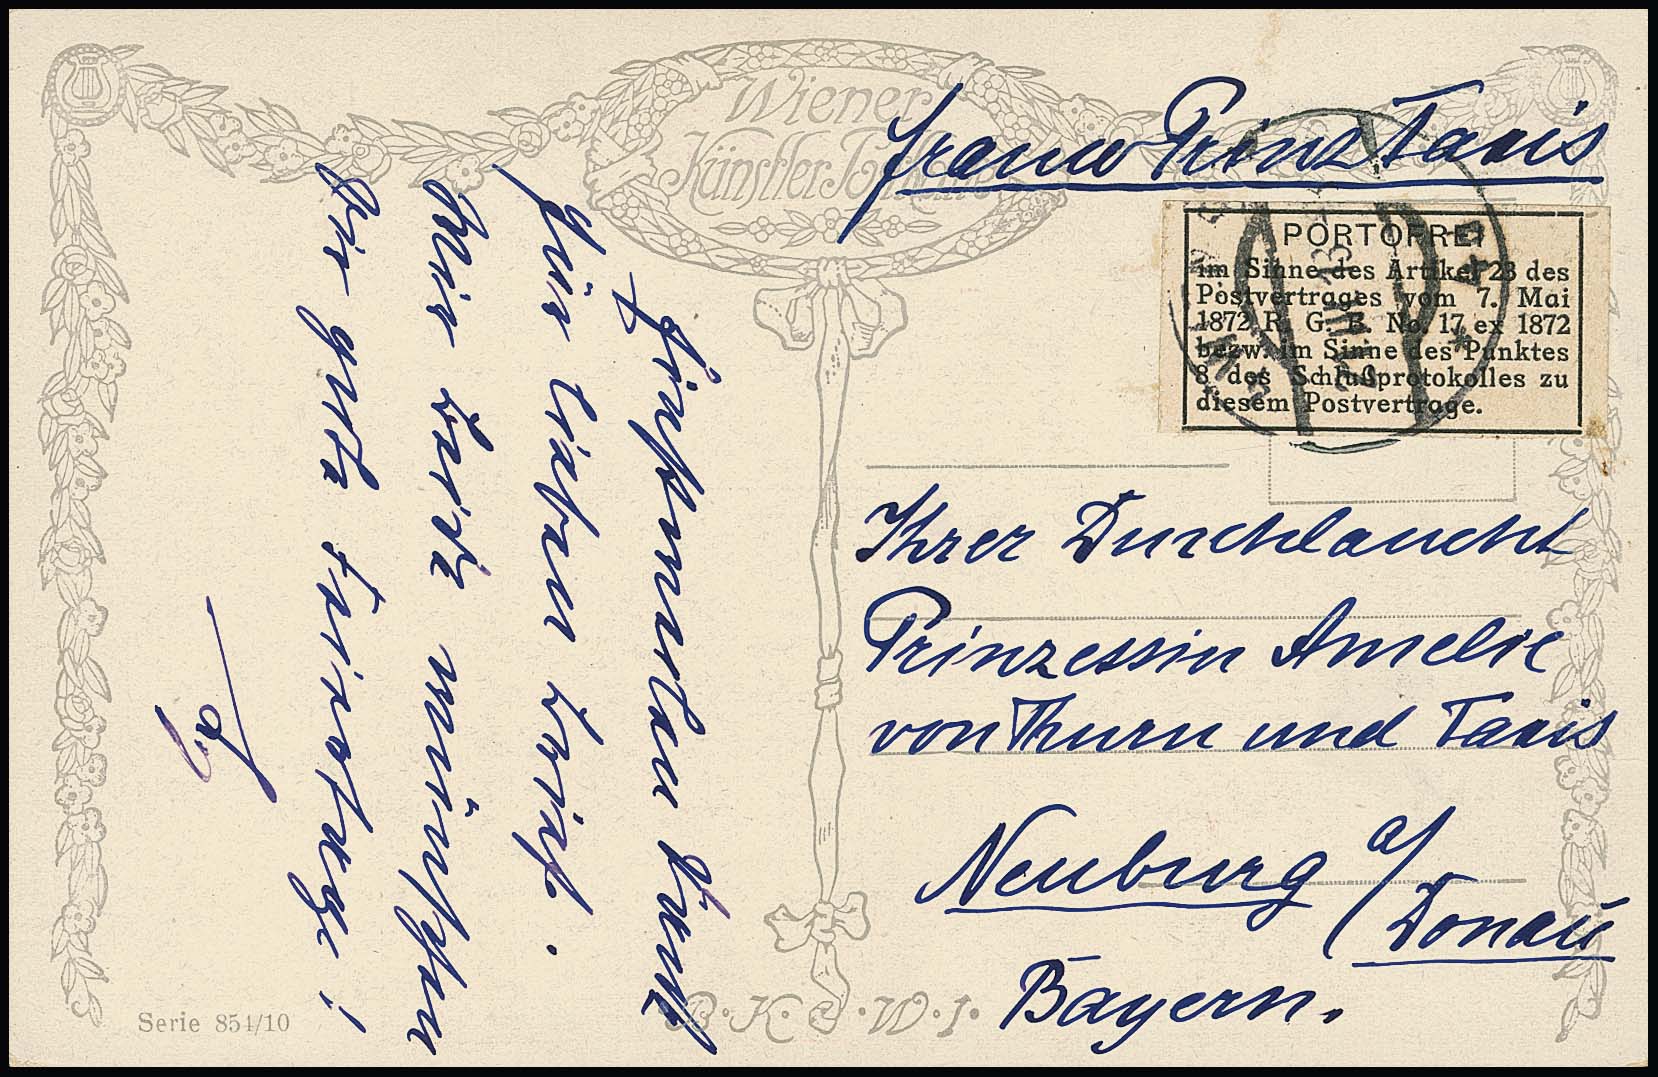 Wiener
Künstler
franco Prinz Taxis
PORTOFREI
im Sinne des Artikel 23 des
Postvertrages vom 7. Mai
1872 R. G. B. No. 17 ex 1872
bezw. im Sinne des Punktes
8 des Schlußprotokolles zu
diesem Postvertrage.
Ihrer Durchlaucht
Prinzessin Amelie
von Thurn und Taxis
Neuburg a/
Donau
Bayern.
Einstweilen Dank
für lieben Brief.
Wir beide wünschen
Dir gute Feiertage!
Serie 854/10
B.K.W.I.